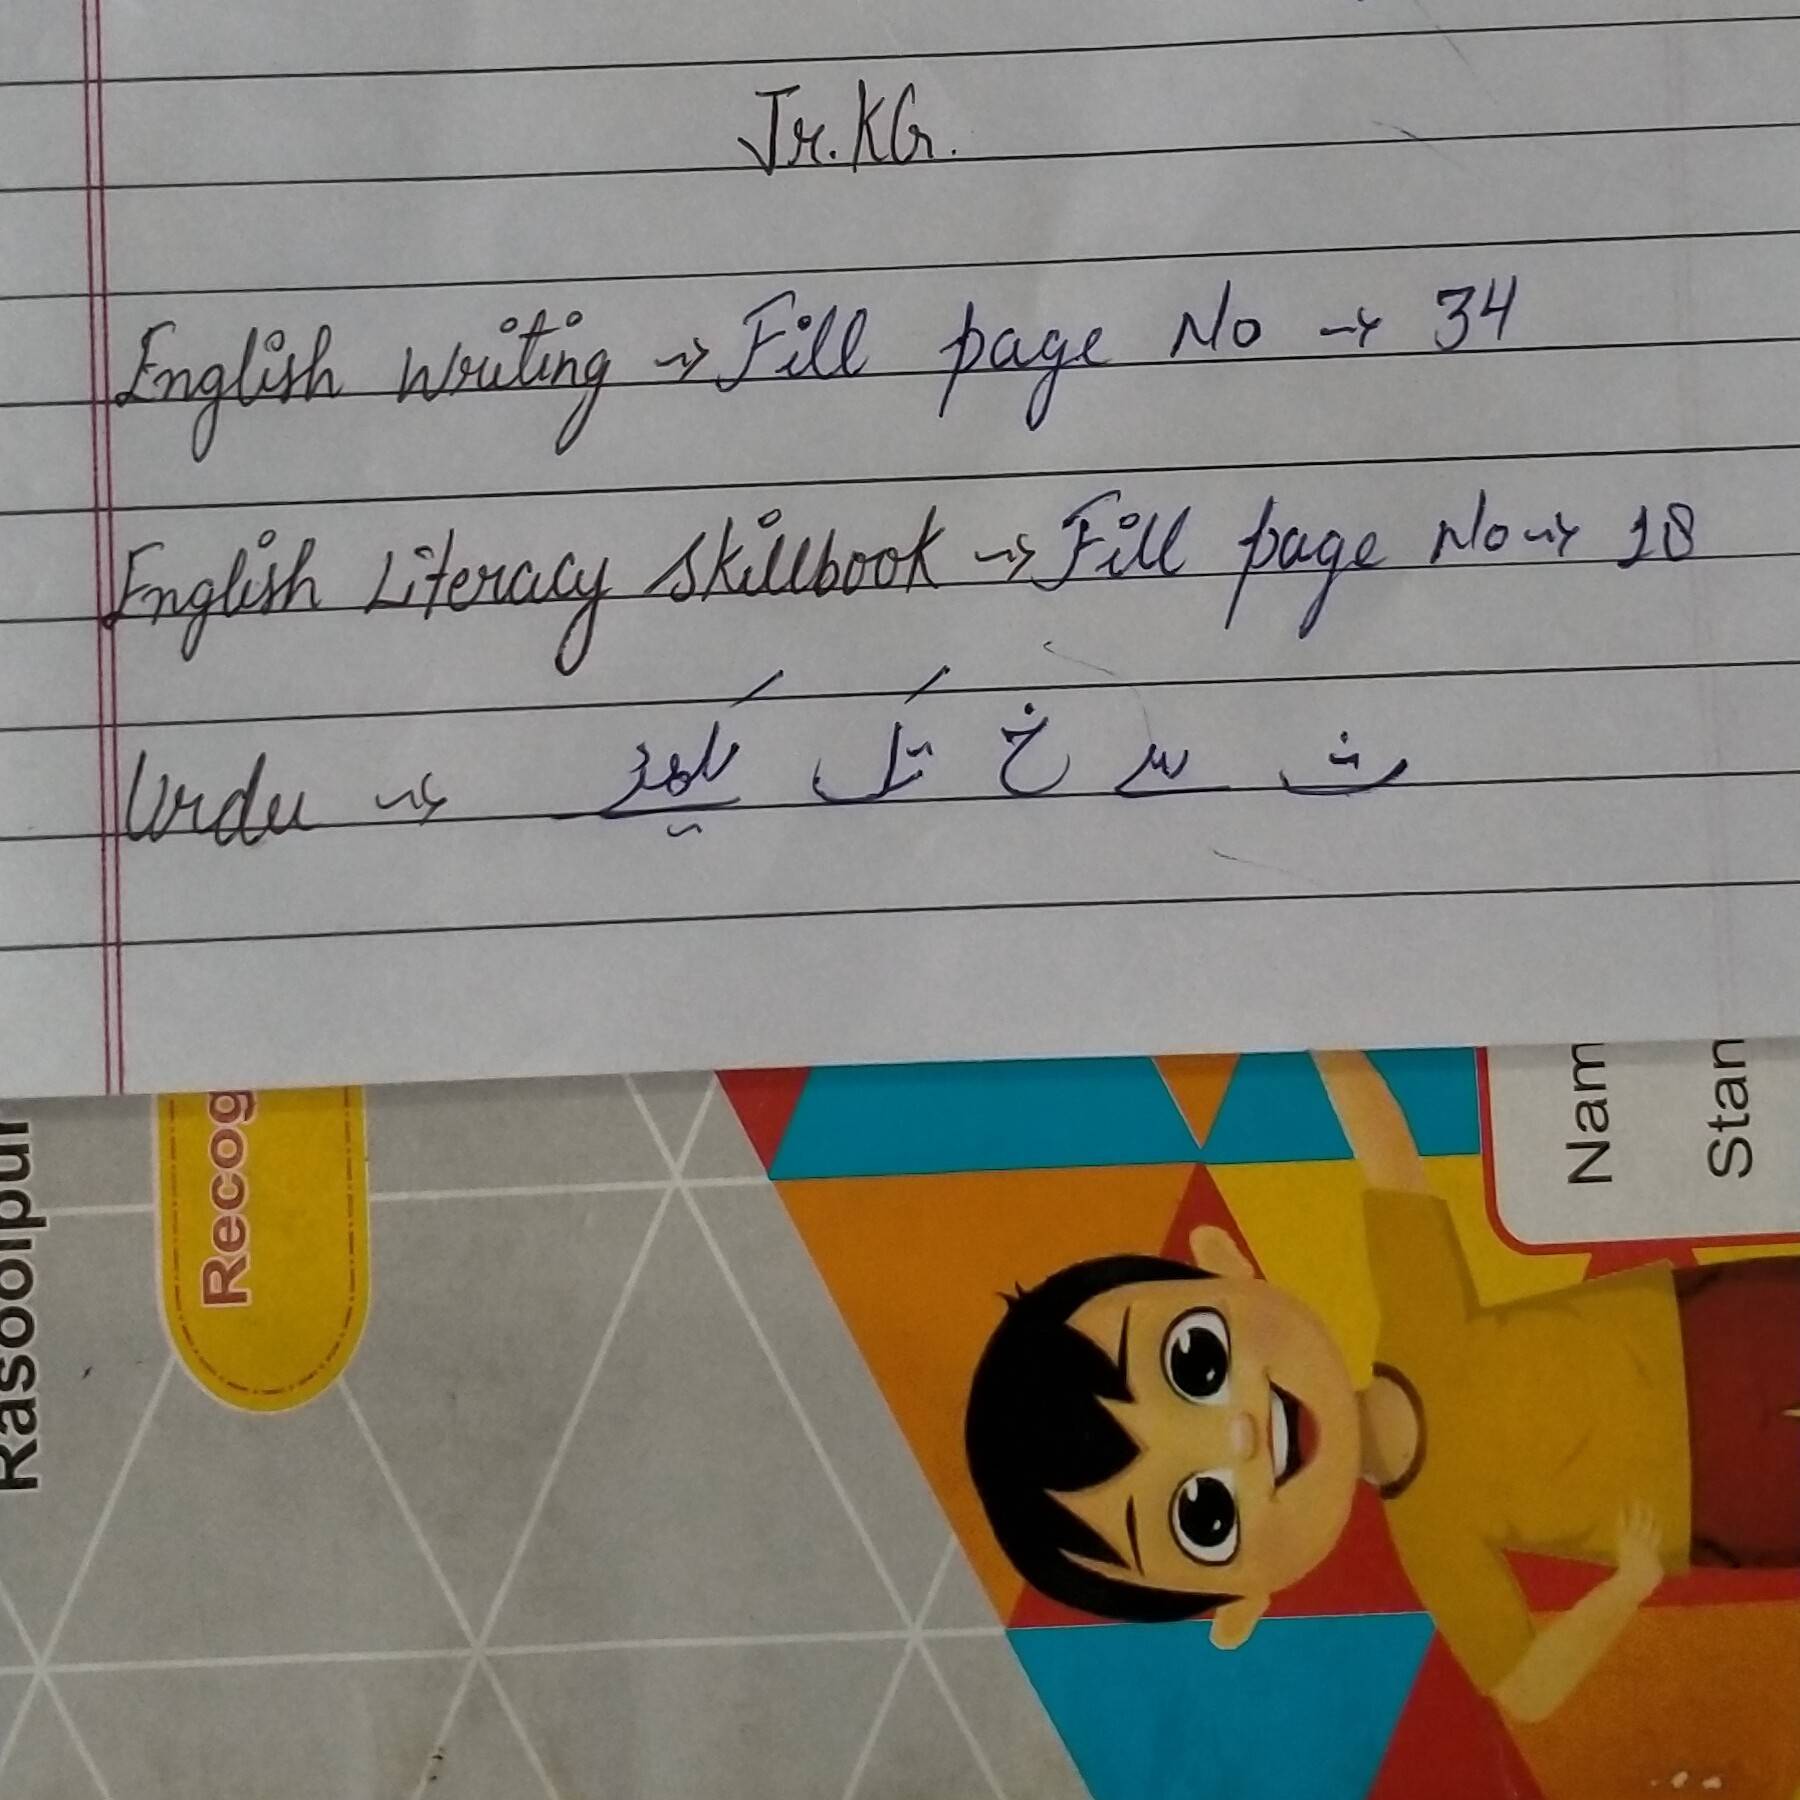 Jr.KG.
English Writing → Fill page No → 34
English Literacy Skillbook → Fill page No → 18
Urdu → ث سے خ تک
Rasoolpur
Recog
Nam
Stan